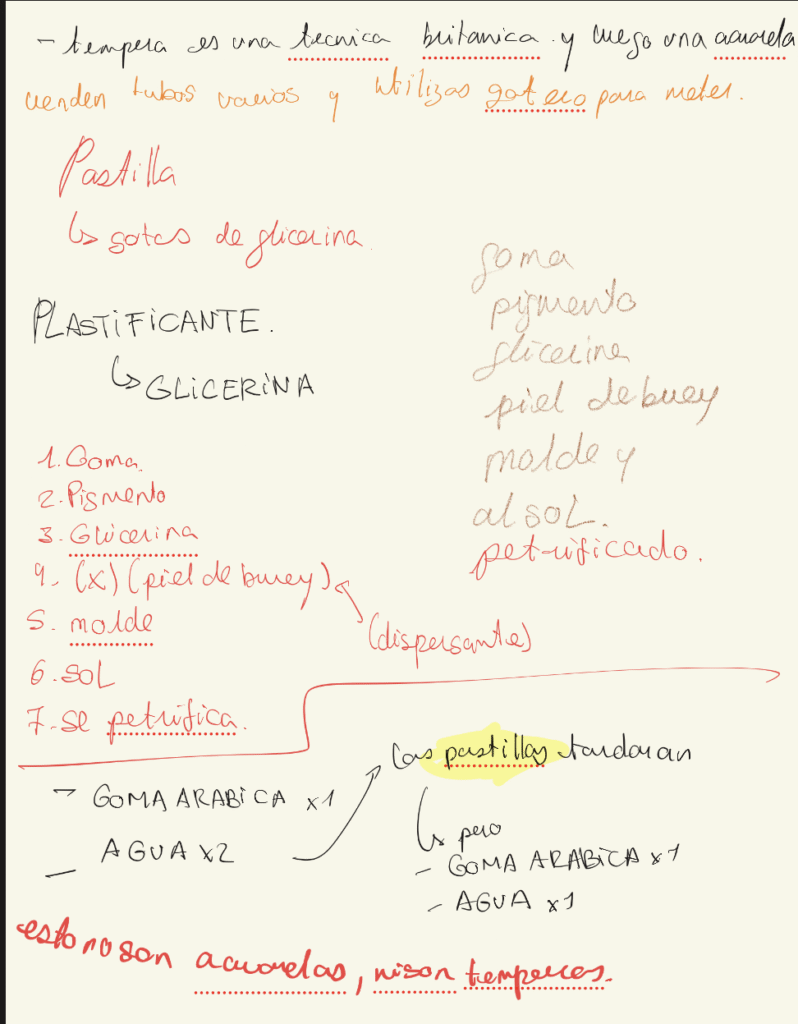 - tempera es una tecnica britanica y luego una acuarela
venden tubos vacios y utilizas gotero para meter.
Pastilla
↳ gotas de glicerina
PLASTIFICANTE.
↳ GLICERINA
goma
pigmento
glicerine
piel de buey
molde y
al sol.
petrificado.
1. Goma.
2. Pigmento
3. Glicerina
4. (x) (piel de buey)
(dispersante)
5. molde
6. SOL
7. se petrifica.
- GOMA ARABICA x1
- AGUA x2
las pastillas tardaran
↳ pero
- GOMA ARABICA x1
- AGUA x1
esto no son acuarelas, ni son temperas.